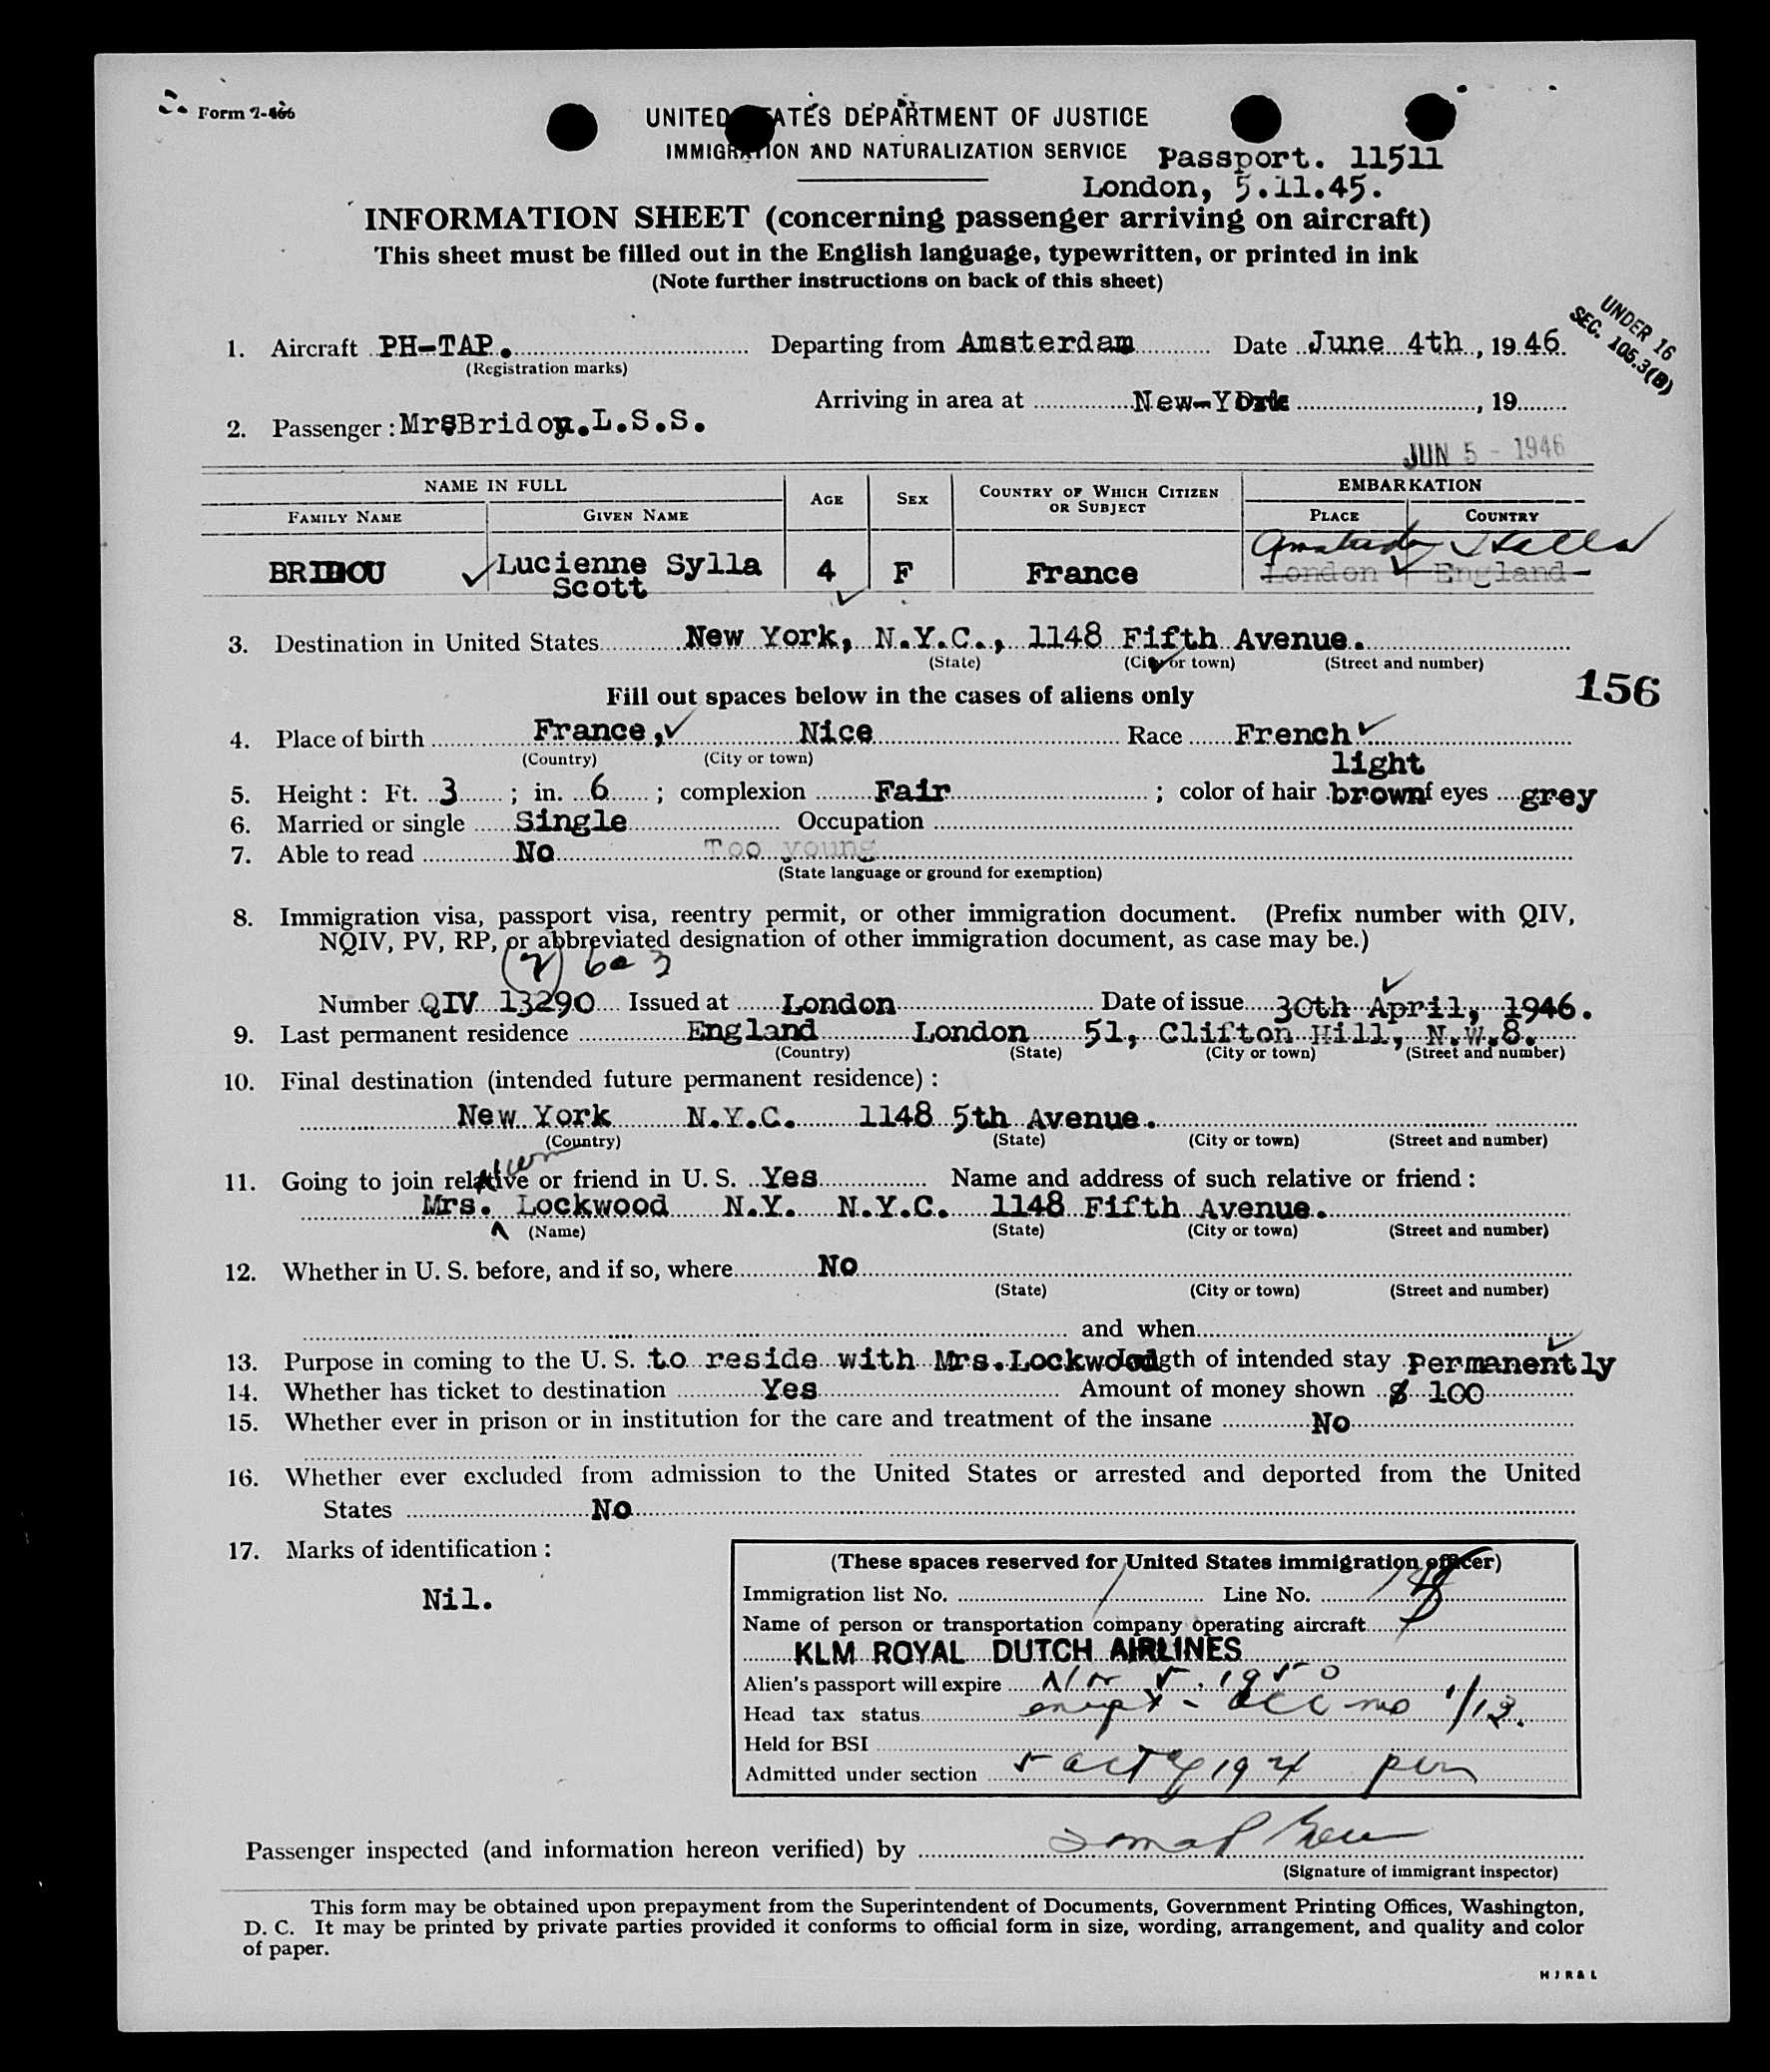 Form I-466
UNITED STATES DEPARTMENT OF JUSTICE
IMMIGRATION AND NATURALIZATION SERVICE
Passport. 11511
London, 5.11.45.
INFORMATION SHEET (concerning passenger arriving on aircraft)
This sheet must be filled out in the English language, typewritten, or printed in ink
(Note further instructions on back of this sheet)
UNDER 16
SEC. 105.3(B)
1. Aircraft PH-TAP. Departing from Amsterdam Date June 4th, 1946.
(Registration marks)
Arriving in area at New-York, 19
2. Passenger: Mrs Bridou. L.S.S.
JUN 5 - 1946
NAME IN FULL AGE SEX COUNTRY OF WHICH CITIZEN OR SUBJECT EMBARKATION
FAMILY NAME GIVEN NAME PLACE COUNTRY
Amsterdam Holland
BRIDOU Lucienne Sylla 4 F France London England
Scott
3. Destination in United States New York, N.Y.C., 1148 Fifth Avenue.
(State) (City or town) (Street and number)
Fill out spaces below in the cases of aliens only
156
4. Place of birth France, Nice Race French
(Country) (City or town)
light
5. Height: Ft. 3; in. 6; complexion Fair; color of hair brown of eyes grey
6. Married or single Single Occupation
7. Able to read No Too young
(State language or ground for exemption)
8. Immigration visa, passport visa, reentry permit, or other immigration document. (Prefix number with QIV,
NQIV, PV, RP, or abbreviated designation of other immigration document, as case may be.)
Number QIV 13290 Issued at London Date of issue 30th April, 1946.
9. Last permanent residence England London 51, Clifton Hill, N.W.8.
(Country) (State) (City or town) (Street and number)
10. Final destination (intended future permanent residence):
New York N.Y.C. 1148 5th Avenue.
(Country) (State) (City or town) (Street and number)
11. Going to join relative or friend in U. S. Yes Name and address of such relative or friend:
Mrs. Lockwood N.Y. N.Y.C. 1148 Fifth Avenue.
(Name) (State) (City or town) (Street and number)
12. Whether in U. S. before, and if so, where No
(State) (City or town) (Street and number)
and when
13. Purpose in coming to the U. S. to reside with Mrs.Lockwood Length of intended stay Permanently
14. Whether has ticket to destination Yes Amount of money shown $ 100
15. Whether ever in prison or in institution for the care and treatment of the insane No
16. Whether ever excluded from admission to the United States or arrested and deported from the United
States No
17. Marks of identification:
Nil.
(These spaces reserved for United States immigration officer)
Immigration list No. 1 Line No.
Name of person or transportation company operating aircraft
KLM ROYAL DUTCH AIRLINES
Alien's passport will expire Nov 5, 1950
Head tax status exempt - acc no 1/13.
Held for BSI
Admitted under section 5 act of 1924 per
Passenger inspected (and information hereon verified) by
(Signature of immigrant inspector)
This form may be obtained upon prepayment from the Superintendent of Documents, Government Printing Offices, Washington,
D. C. It may be printed by private parties provided it conforms to official form in size, wording, arrangement, and quality and color
of paper.
H J R & L